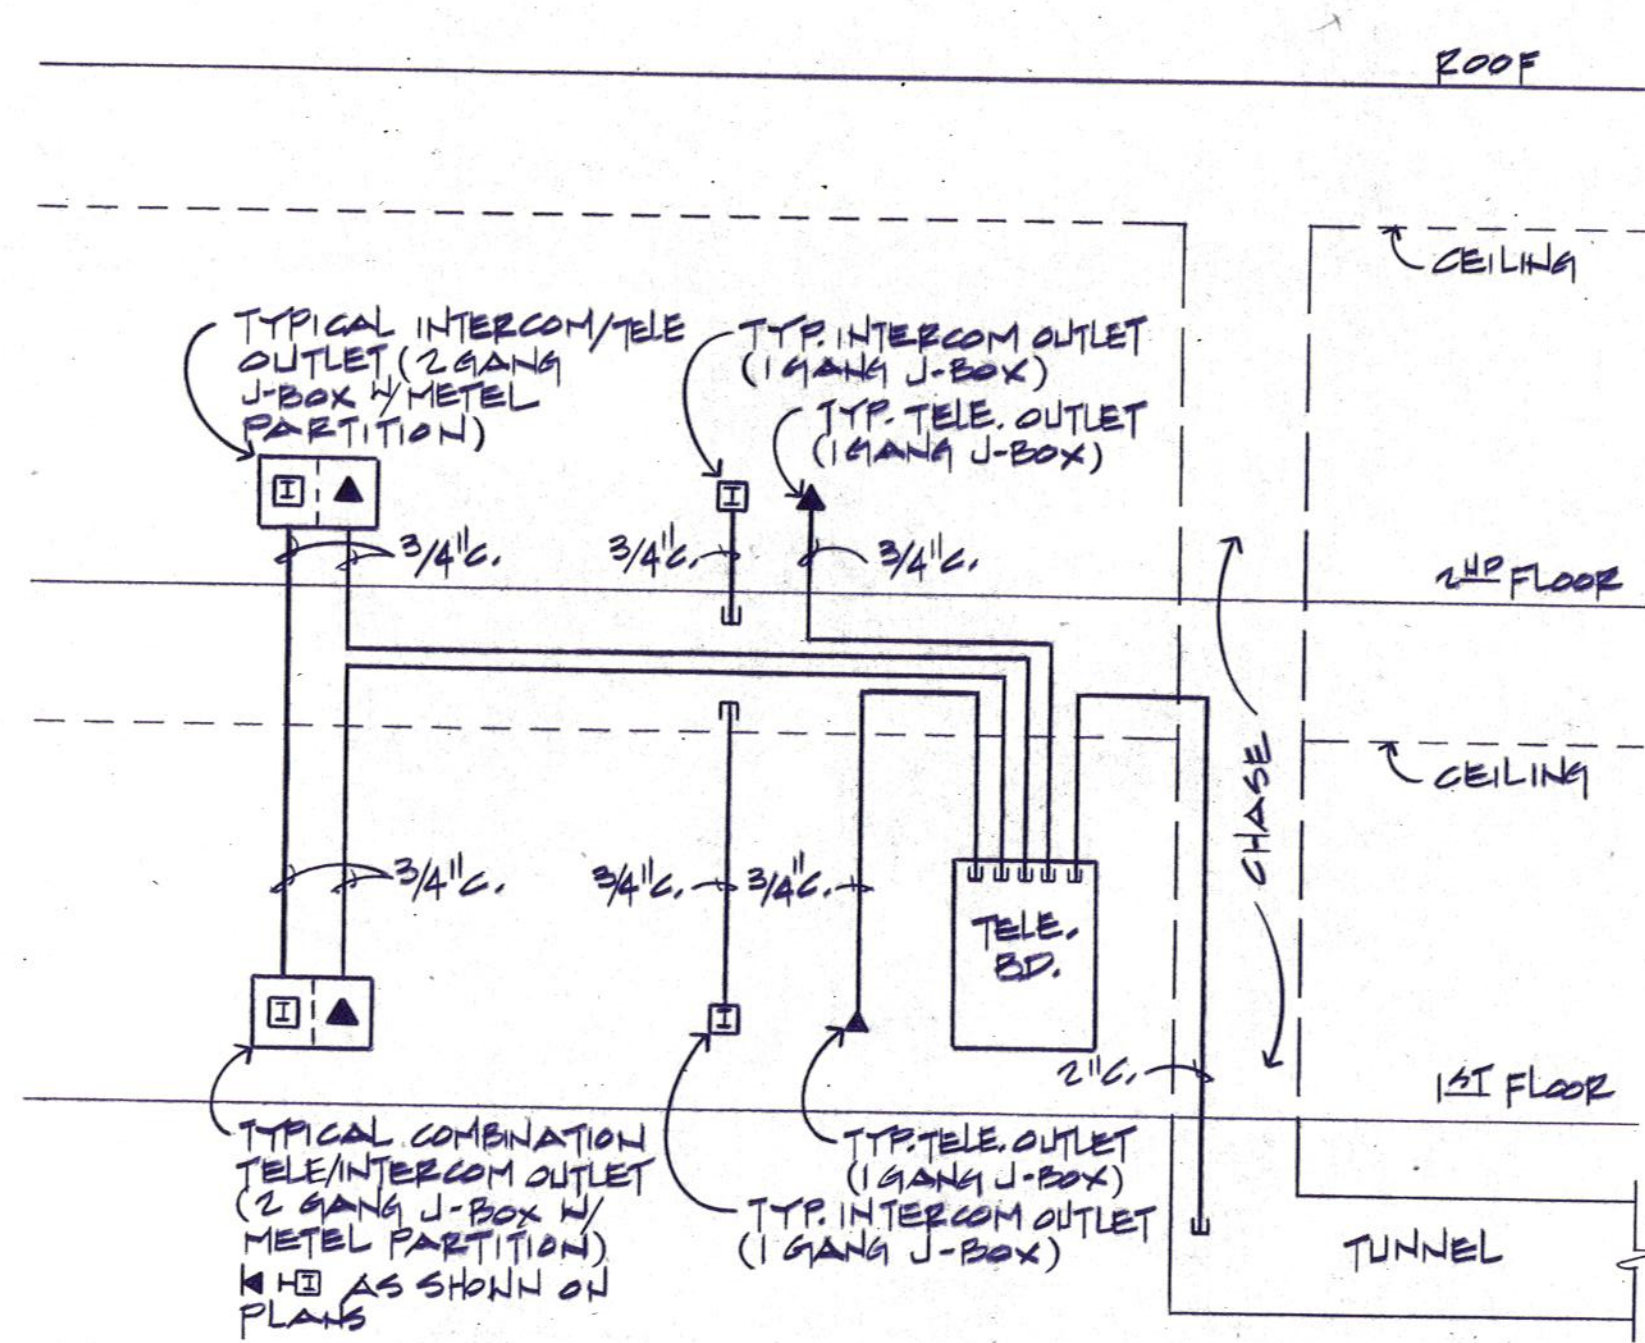 ROOF
CEILING
TYPICAL INTERCOM/TELE
OUTLET (2 GANG
J-BOX W/METEL
PARTITION)
TYP. INTERCOM OUTLET
(1 GANG J-BOX)
TYP. TELE. OUTLET
(1 GANG J-BOX)
I
I
3/4"C.
3/4"C.
3/4"C.
2ND FLOOR
CEILING
CHASE
3/4"C.
3/4"C.
3/4"C.
TELE.
BD.
I
I
2"C.
1ST FLOOR
TYPICAL COMBINATION
TELE/INTERCOM OUTLET
(2 GANG J-BOX W/
METEL PARTITION)
I AS SHOWN ON
PLANS
TYP. TELE. OUTLET
(1 GANG J-BOX)
TYP. INTERCOM OUTLET
(1 GANG J-BOX)
TUNNEL